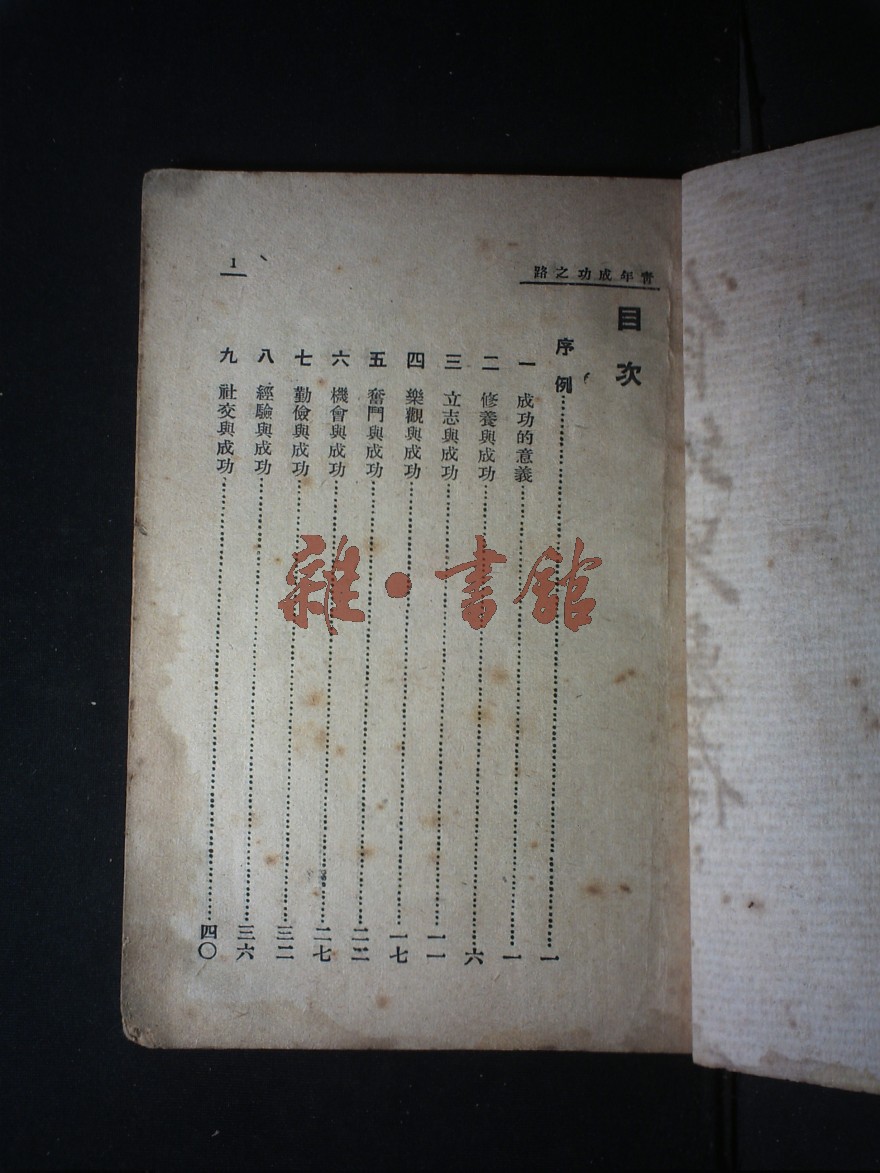 青年成功之路
1
目次
序例⋯⋯一
一 成功的意義⋯⋯一
二 修養與成功⋯⋯六
三 立志與成功⋯⋯一一
四 樂觀與成功⋯⋯一七
五 奮鬥與成功⋯⋯二二
六 機會與成功⋯⋯二七
七 勤儉與成功⋯⋯三二
八 經驗與成功⋯⋯三六
九 社交與成功⋯⋯四〇
雜·書館